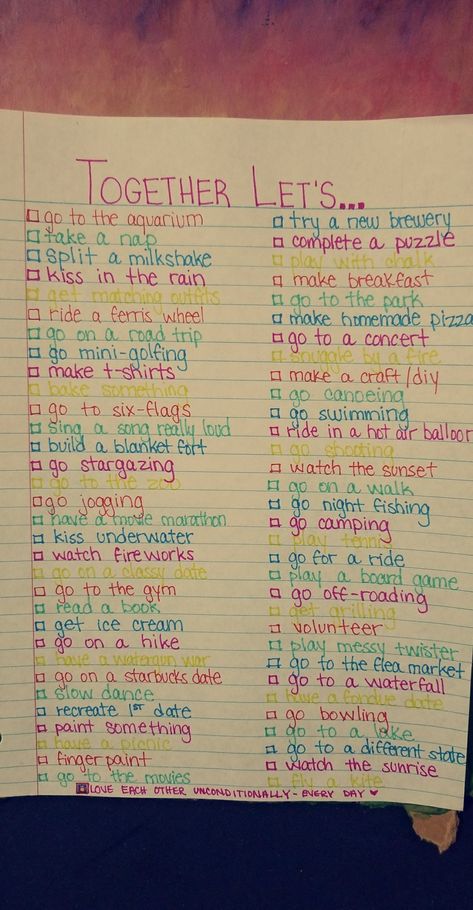 TOGETHER LET'S...
go to the aquarium
take a nap
split a milkshake
kiss in the rain
get matching outfits
ride a ferris wheel
go on a road trip
go mini-golfing
make t-shirts
bake something
go to six-flags
sing a song really loud
build a blanket fort
go stargazing
go to the zoo
go jogging
have a movie marathon
kiss underwater
watch fireworks
go on a classy date
go to the gym
read a book
get ice cream
go on a hike
have a watergun war
go on a starbucks date
slow dance
recreate 1st date
paint something
have a picnic
finger paint
go to the movies
try a new brewery
complete a puzzle
play with chalk
make breakfast
go to the park
make homemade pizza
go to a concert
snuggle by a fire
make a craft/diy
go canoeing
go swimming
ride in a hot air balloon
go shooting
watch the sunset
go on a walk
go night fishing
go camping
play tennis
go for a ride
play a board game
go off-roading
get grilling
volunteer
play messy twister
go to the flea market
go to a waterfall
have a fondue date
go bowling
go to a lake
go to a different state
watch the sunrise
fly a kite
LOVE EACH OTHER UNCONDITIONALLY - EVERY DAY ♥